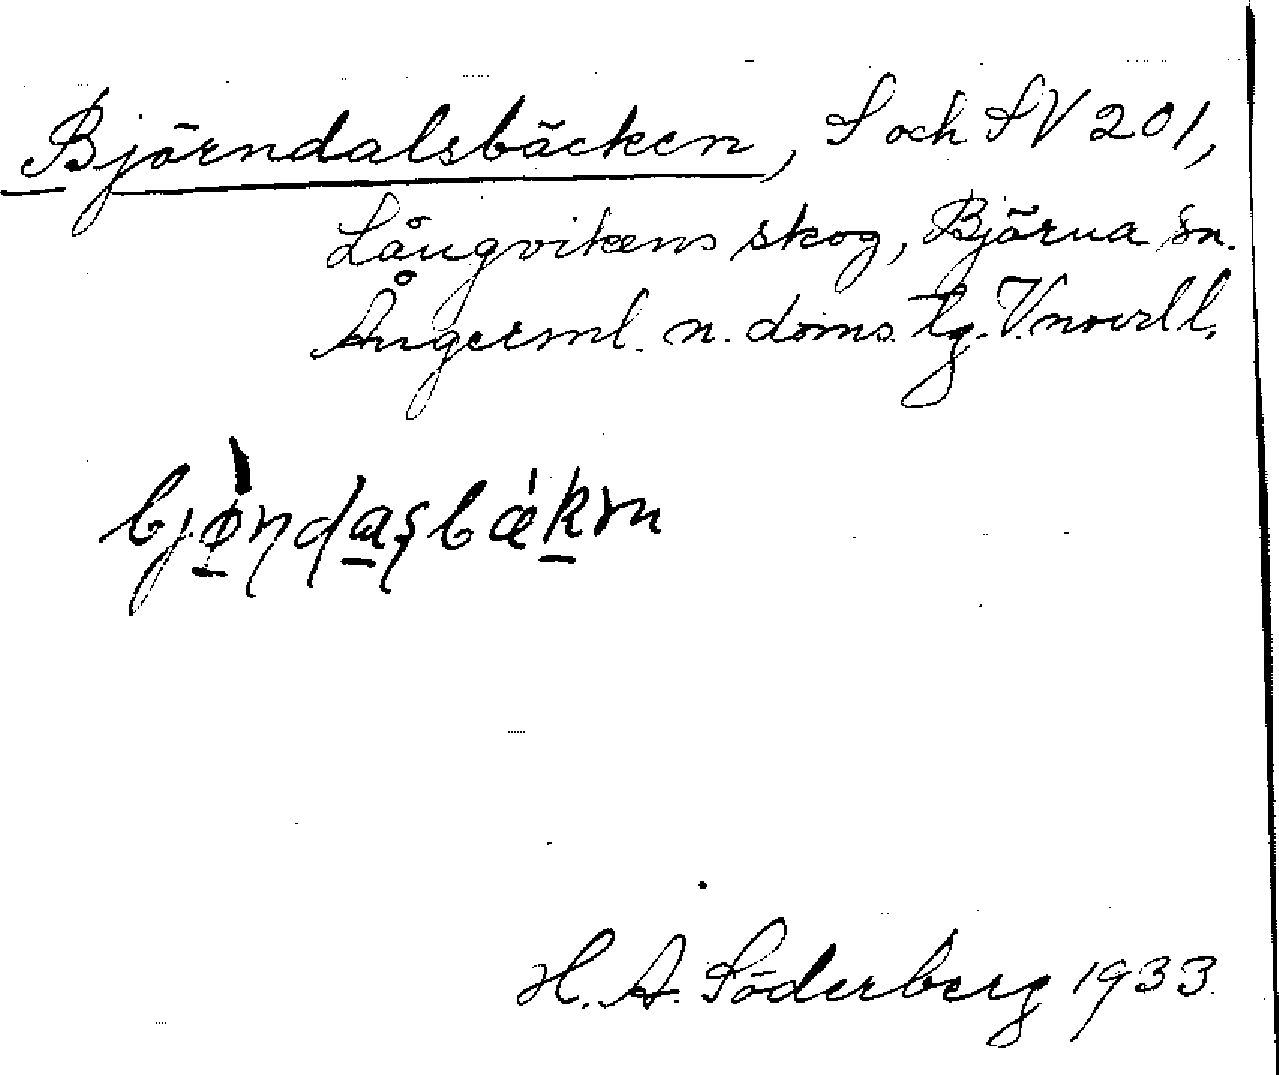 Björndalsbäcken, S och SV 201,
Långvikens skog, Björna sn.
Ångerml. n. doms. tg. V.norrl l.
bjø̀ṇḍasbǽkm
H. A. Söderberg 1933.